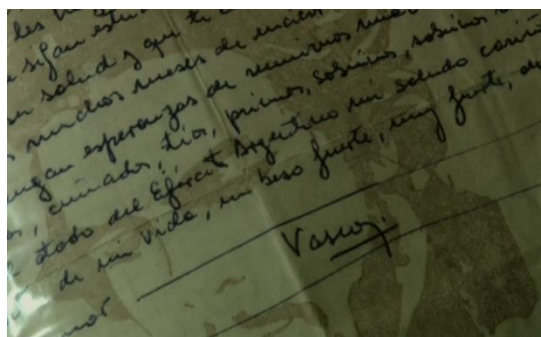 les
sigan estu
su salud y que te
muchos meses de
engan esperanzas de
s, cuñados, tíos, primos, sobrinos, sobrinos
stado del Ejército Argentino mi saludo cariñ
de mi vida, un beso fuerte, muy fuerte, de
mor
Vasco.